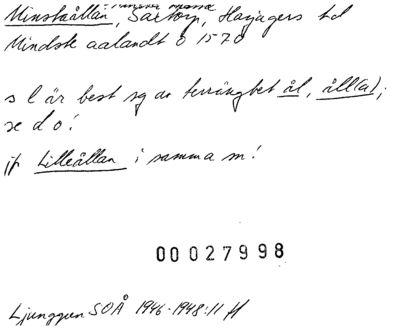 Minstaållan, Saxtorp, Harjagers hd
Mindste aalandt ö 1570
s l är best sg av terrängbet ål, åll(a);
se d o!
jfr Lilleållan i samma sn!
00027998
Ljunggren SOÅ 1946-1948:11 ff